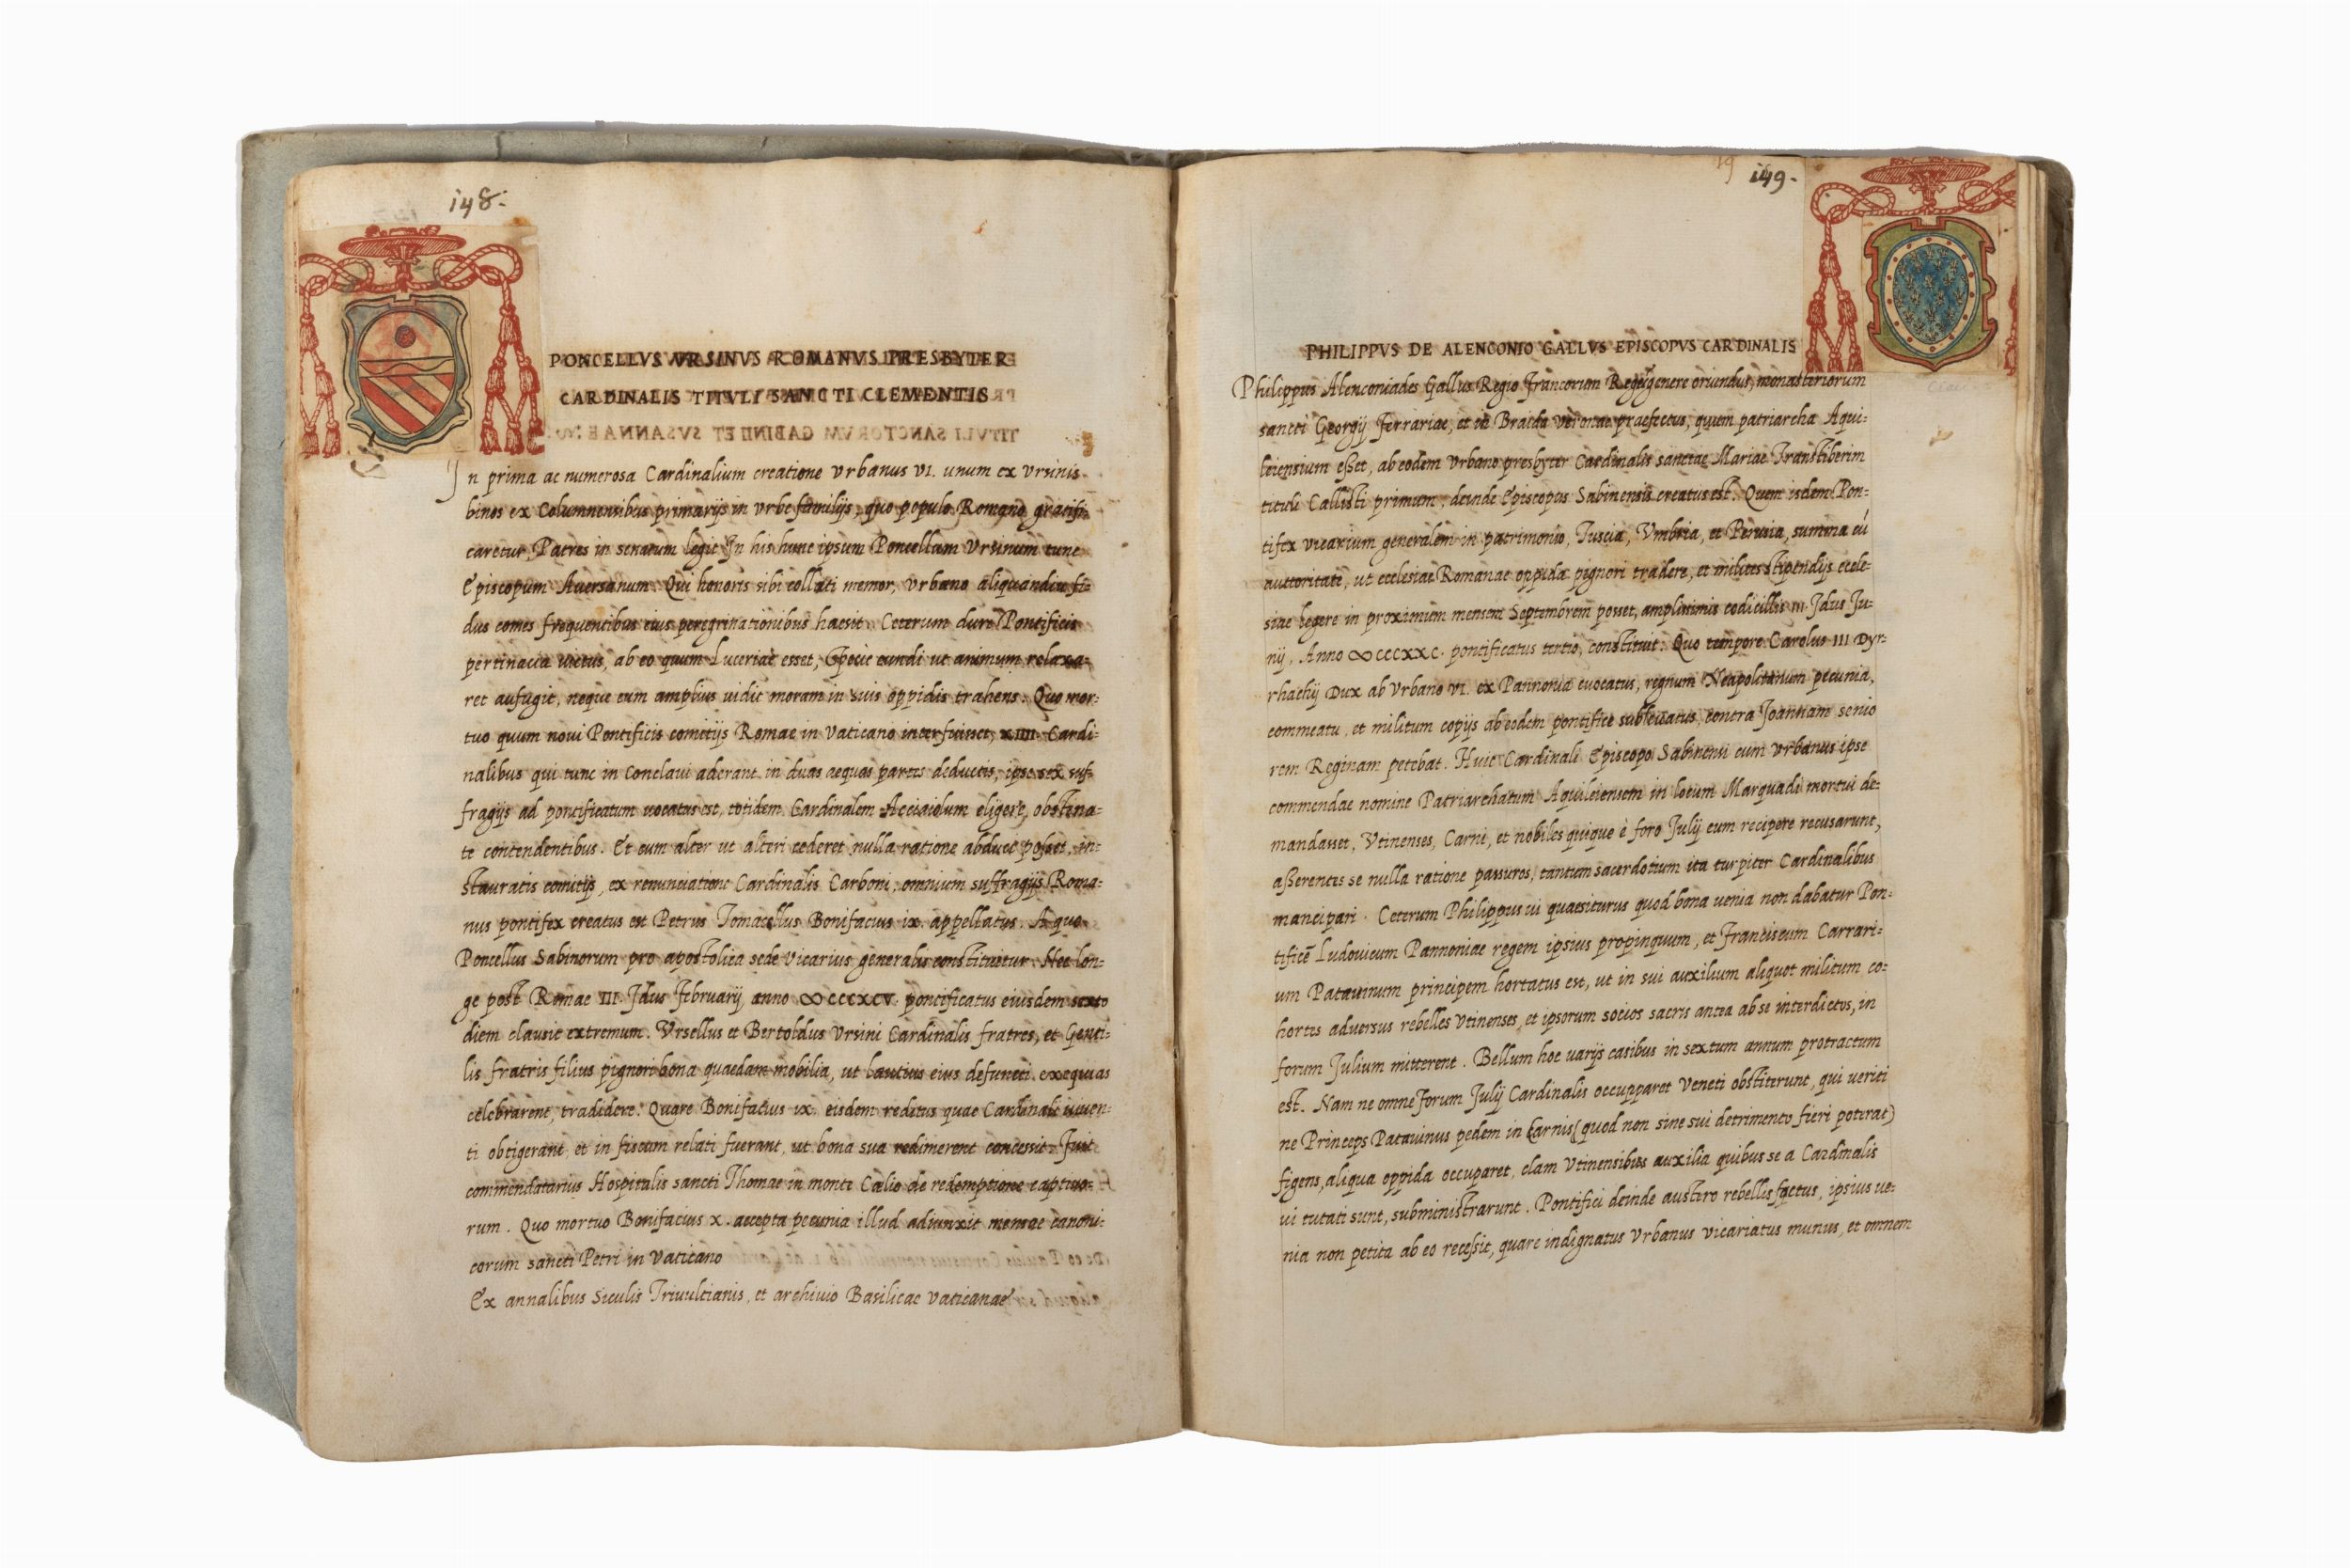 148.
PONCELLVS VRSINVS ROMANVS PRESBYTER
CARDINALIS TITVLI SANCTI CLEMENTIS
In prima ac numerosa Cardinalium creatione Vrbanus VI. unum ex Vrsinis
binos ex Columnensibus primarijs in vrbe familijs, quo populo Romano gratifi-
caretur, Patres in senatum legit. In his hunc ipsum Poncellum Vrsinum tunc
Episcopum Auersanum. Qui honoris sibi collati memor, Vrbano aliquandiu fi-
dus comes frequentibus eius peregrinationibus haesit. Ceterum dure Pontificis
pertinacia victus, ab eo quum Luceriae esset, specie eundi ut animum relaxa-
ret aufugit, neque eum amplius vidit moram in suis oppidis trahens. Quo mor-
tuo quum noui Pontificis comitijs Romae in Vaticano interfuisset, XIIII. Cardi-
nalibus qui tunc in Conclaui aderant in duas aequas partes deductis, ipse sex suf-
fragijs ad pontificatum vocatus est, totidem Cardinalem Acciaiolum eligere, obstina-
te contendentibus. Et cum alter ut alteri cederet nulla ratione abduci posset, in-
stauratis comitijs, ex renunciatione Cardinalis Carboni, omnium suffragijs Roma-
nus pontifex creatus est Petrus Tomacellus Bonifacius ix. appellatus. A quo
Poncellus Sabinorum pro apostolica sede Vicarius generalis constituitur. Nec lon-
ge post Romae III. Idus Februarij anno ∞CCCXCV. pontificatus eiusdem sexto
diem clausit extremum. Vrsellus et Bertoldus Vrsini Cardinalis fratres, et Genti-
lis fratris filius pignori bona quaedam mobilia, ut lautius eius defuncti exequias
celebrarent, tradidere. Quare Bonifacius ix. eisdem reditus quae Cardinali viuen-
ti obtigerant, et in fiscum relati fuerant, ut bona sua redimerent concessit. Fuit
commendatarius Hospitalis sancti Thomae in monte Cælio de redemptione captiuo-
rum. Quo mortuo Bonifacius X. accepta pecunia illud adiunxit mensae canoni-
corum sancti Petri in Vaticano
Ex annalibus Siculis Triuultianis, et archiuio Basilicae Vaticanae
149.
PHILIPPVS DE ALENCONIO GALLVS EPISCOPVS CARDINALIS
Philippus Alenconiades Gallus Regio Francorum Regum genere oriundus, monasteriorum
sancti Georgij Ferrariae, et in Braida Veronae praefectus, quum patriarcha Aqui-
leiensium esset, ab eodem Vrbano presbyter Cardinalis sanctae Mariae Transtiberim
tituli Callisti primum, deinde Episcopus Sabinensis creatus est. Quem isdem Pon-
tifex vicarium generalem in patrimonio, Tuscia, Vmbria, et Perusia, summa cū
auctoritate, ut ecclesiae Romanae oppida pignori tradere, et milites stipendijs eccle-
siae legere in proximum mensem Septembrem posset, amplissimis codicillis III. Idus Iu-
nij. Anno ∞CCCXXC. pontificatus tertio, constituit. Quo tempore Carolus III Dyr-
rhachij Dux ab Vrbano VI. ex Pannonia euocatus, regnum Neapolitanum pecunia,
commeatu, et militum copijs ab eodem pontifice subleuatus, contra Ioannam senio
rem Reginam petebat. Huic Cardinali Episcopo Sabinensi cum Vrbanus ipse
commendae nomine Patriarchatum Aquileiensem in locum Marquadi mortui de-
mandasset, Vtinenses, Carni, et nobiles quique è foro Julij eum recipere recusarunt,
asserentes se nulla ratione passuros, tantum sacerdotium ita turpiter Cardinalibus
mancipari. Ceterum Philippus vi quaesiturus quod bona venia non dabatur Pon-
tificē Ludouicum Pannoniae regem ipsius propinquum, et Franciscum Carrari-
um Patauinum principem hortatus est, ut in sui auxilium aliquot militum co-
hortes aduersus rebelles Vtinenses, et ipsorum socios sacris antea ab se interdictos, in
forum Julium mitterent. Bellum hoc varijs casibus in sextum annum protractum
est. Nam ne omne Forum Julij Cardinalis occupparet Veneti obstiterunt, qui veriti
ne Princeps Patauinus pedem in Carnis (quod non sine sui detrimento fieri poterat)
figens, aliqua oppida occuparet, clam Vtinensibus auxilia quibus se a Cardinalis
vi tutati sunt, subministrarunt. Pontifici deinde austero rebellis factus, ipsius ve-
nia non petita ab eo recessit, quare indignatus Vrbanus vicariatus munus, et omnem